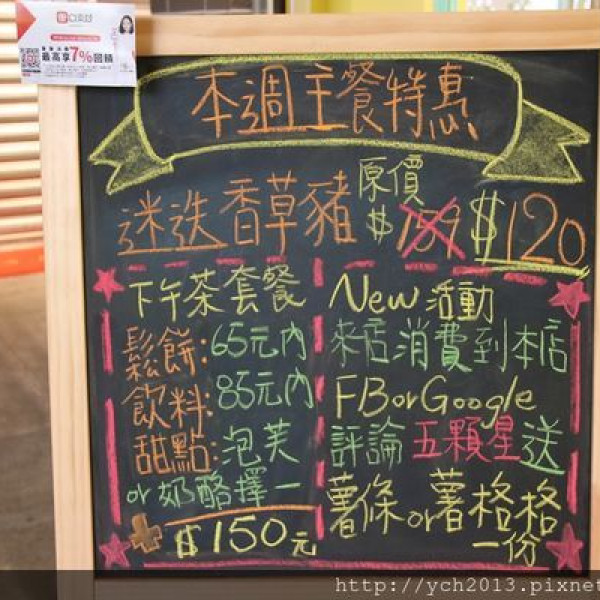 口袋
最高享7%回饋
本週主餐特惠
迷迭香草豬 原價 $159 $120
下午茶套餐
鬆餅:65元內
飲料:85元內
甜點:泡芙
or奶酪擇一
$150元
New活動
來店消費到本店
FBorGoogle
評論五顆星送
薯條or薯格格
一份
http://ych2013.pixne